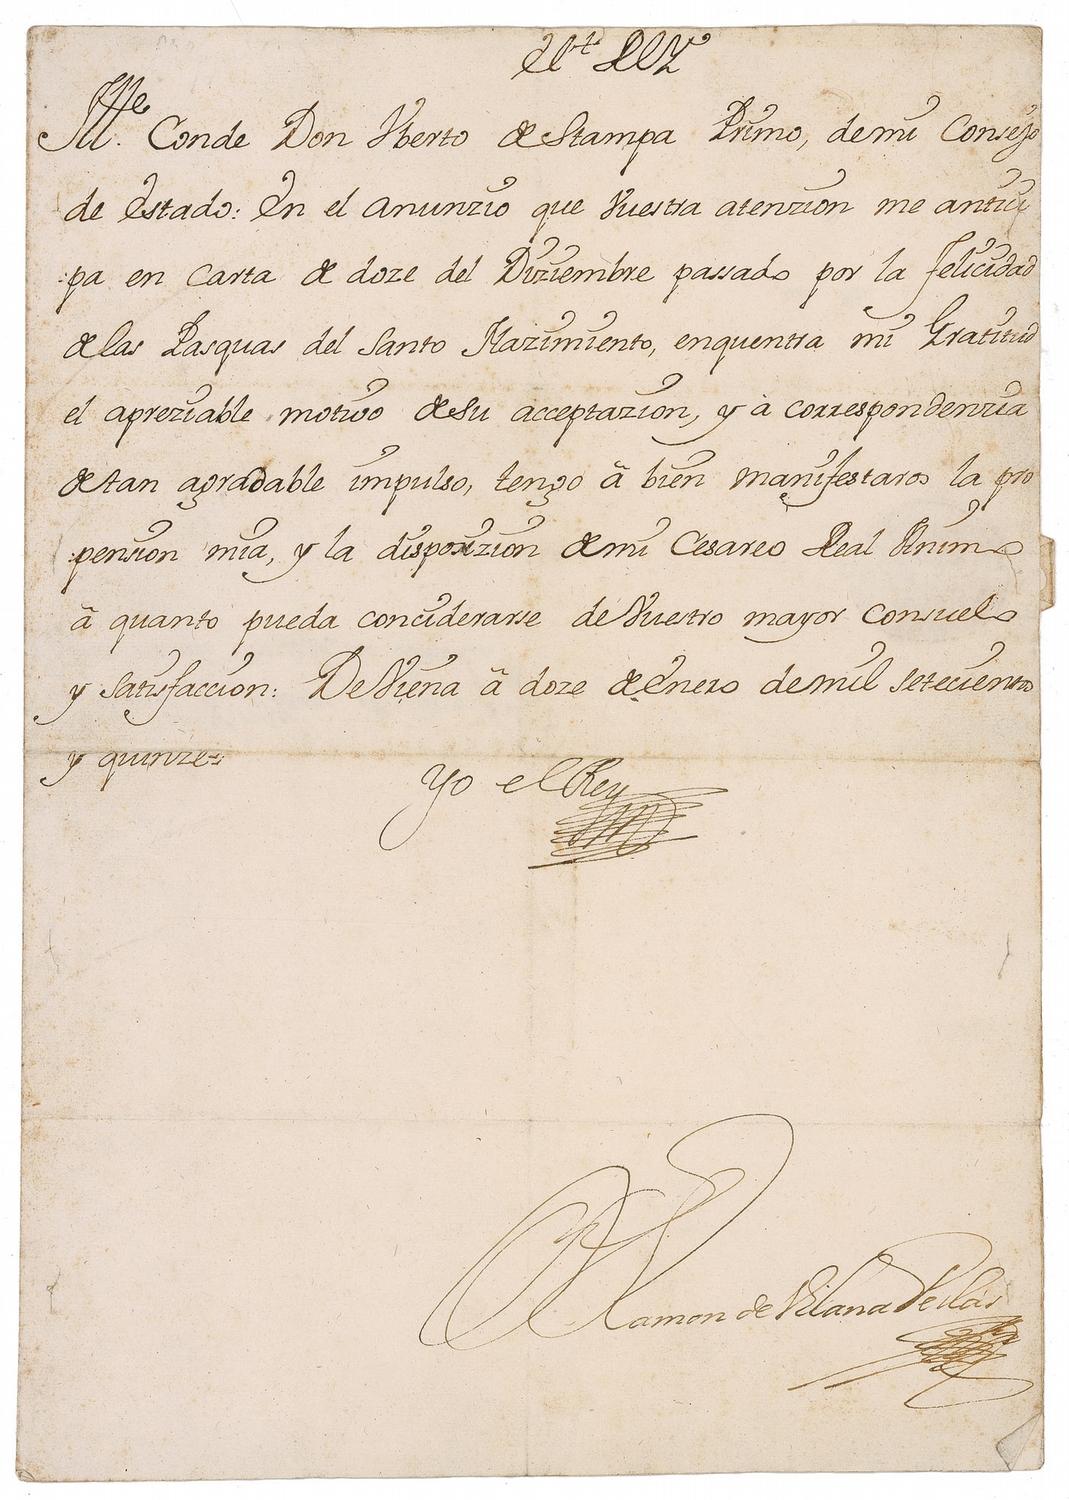 El Rey
Ill.e Conde Don Vberto de Stampa Primo, de mi Consejo
de Estado: En el anunzio que Vuestra atenzion me antici
pa en carta de doze del Diziembre passado por la felicidad
de las Pasquas del Santo Nazimiento, enquentra mi Gratitud
el apreziable motivo de su acceptazion, y à correspondenzia
de tan agradable impulso, tengo â bien manifestaros la pro
pension mia, y la disposizion de mi Cesareo Real Animo
â quanto pueda conciderarse de Vuestro mayor Consuelo
y satisfaccion: De Viena â doze de Enero de mil setecientos
y quinze
Yo el Rey
Ramon de Vilana Perlàs